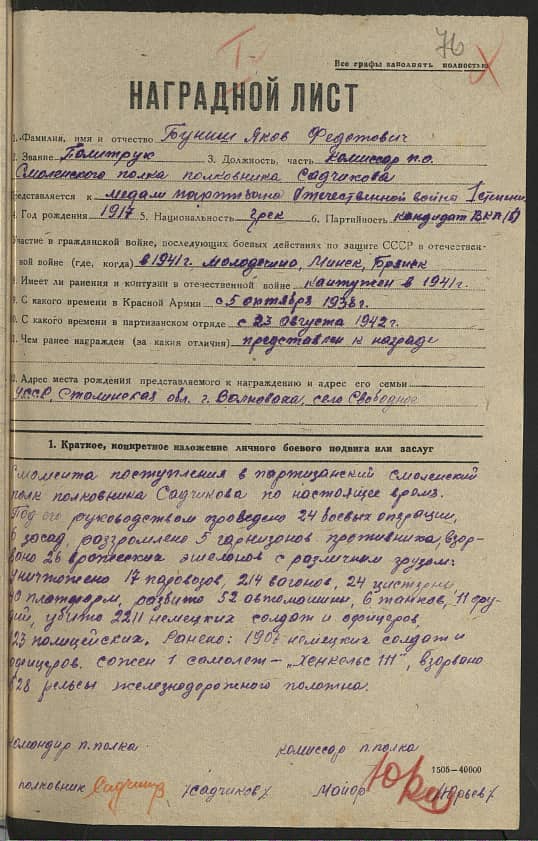 76
I
Все графы заполнять полностью
НАГРАДНОЙ ЛИСТ
1. Фамилия, имя и отчество Буниш Яков Федотович
2. Звание Политрук 3. Должность, часть комиссар п.о.
Смоленского полка полковника Садчикова
представляется к медали партизана Отечественной война 1 степени
4. Год рождения 1917 5. Национальность грек 6. Партийность кандидат ВКП(б)
Участие в гражданской войне, последующих боевых действиях по защите СССР в отечествен-
ной войне (где, когда) в 1941 г. Молодечино, Минск, Брянск
8. Имеет ли ранения и контузии в отечественной войне кантужен в 1941 г.
9. С какого времени в Красной Армии с 5 октября 1938 г.
0. С какого времени в партизанском отряде с 23 августа 1942 г.
1. Чем ранее награжден (за какия отличия) представлен к награде
2. Адрес места рождения представляемого к награждению и адрес его семьи
УССР, Сталинская обл. г. Волноваха, село Свободное
1. Краткое, конкретное изложение личного боевого подвига или заслуг
С момента поступления в партизанский Смоленский
полк полковника Садчикова по настоящее время.
Под его руководством проведено 24 боевых операции,
6 засад, разгромлено 5 гарнизонов противника, взор-
вано 26 вражеских эшелонов с различным грузом:
уничтожено 17 паровозов, 214 вагонов, 24 цистерны,
40 платформ, разбито 52 автомашины, 6 танков, 11 ору-
дий, убито 2211 немецких солдат и офицеров,
23 полицейских. Ранено: 190 немецких солдат и
офицеров. сожен 1 самолет – „Хенкольс 111", взорвано
828 рельсы железнодорожного полотна.
командир п. полка комиссар п. полка
1505—40000
полковник Садчиков /Садчиков/ Майор Юрьев /Юрьев/